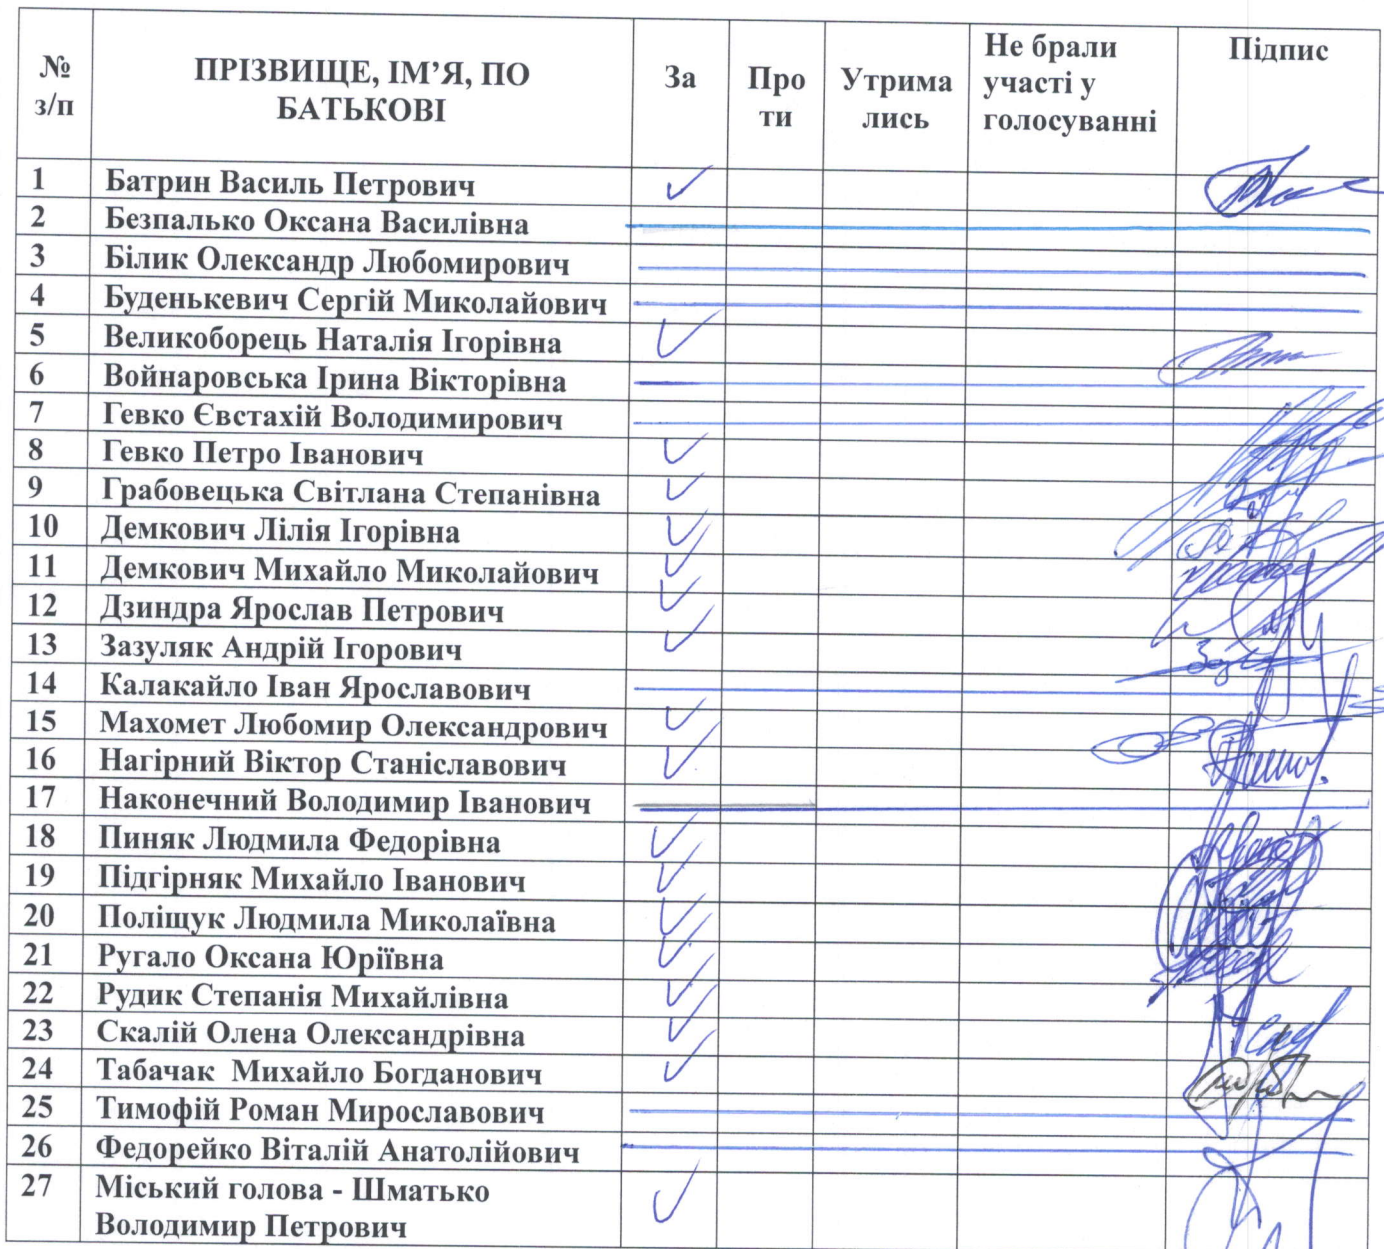 № з/п ПРІЗВИЩЕ, ІМ’Я, ПО БАТЬКОВІ За Про ти Утрима лись Не брали участі у голосуванні Підпис
1 Батрин Василь Петрович ✓
2 Безпалько Оксана Василівна
3 Білик Олександр Любомирович
4 Буденькевич Сергій Миколайович
5 Великоборець Наталія Ігорівна ✓
6 Войнаровська Ірина Вікторівна
7 Гевко Євстахій Володимирович
8 Гевко Петро Іванович ✓
9 Грабовецька Світлана Степанівна ✓
10 Демкович Лілія Ігорівна ✓
11 Демкович Михайло Миколайович ✓
12 Дзиндра Ярослав Петрович ✓
13 Зазуляк Андрій Ігорович ✓
14 Калакайло Іван Ярославович
15 Махомет Любомир Олександрович ✓
16 Нагірний Віктор Станіславович ✓
17 Наконечний Володимир Іванович
18 Пиняк Людмила Федорівна ✓
19 Підгірняк Михайло Іванович ✓
20 Поліщук Людмила Миколаївна ✓
21 Ругало Оксана Юріївна ✓
22 Рудик Степанія Михайлівна ✓
23 Скалій Олена Олександрівна ✓
24 Табачак Михайло Богданович ✓
25 Тимофій Роман Мирославович
26 Федорейко Віталій Анатолійович
27 Міський голова - Шматько
Володимир Петрович ✓